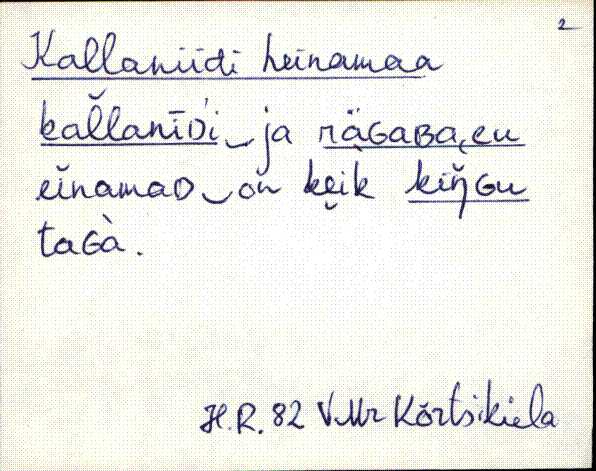 2
Kallaniidi heinamaa
kal̆lanīᴅ́i‿ja räɢaʙa,eu
eĭnamaᴅ‿on ke̮ìk kiŋ̆ɢu
taɢà.
H.R. 82 VMr Kõrtsikiela